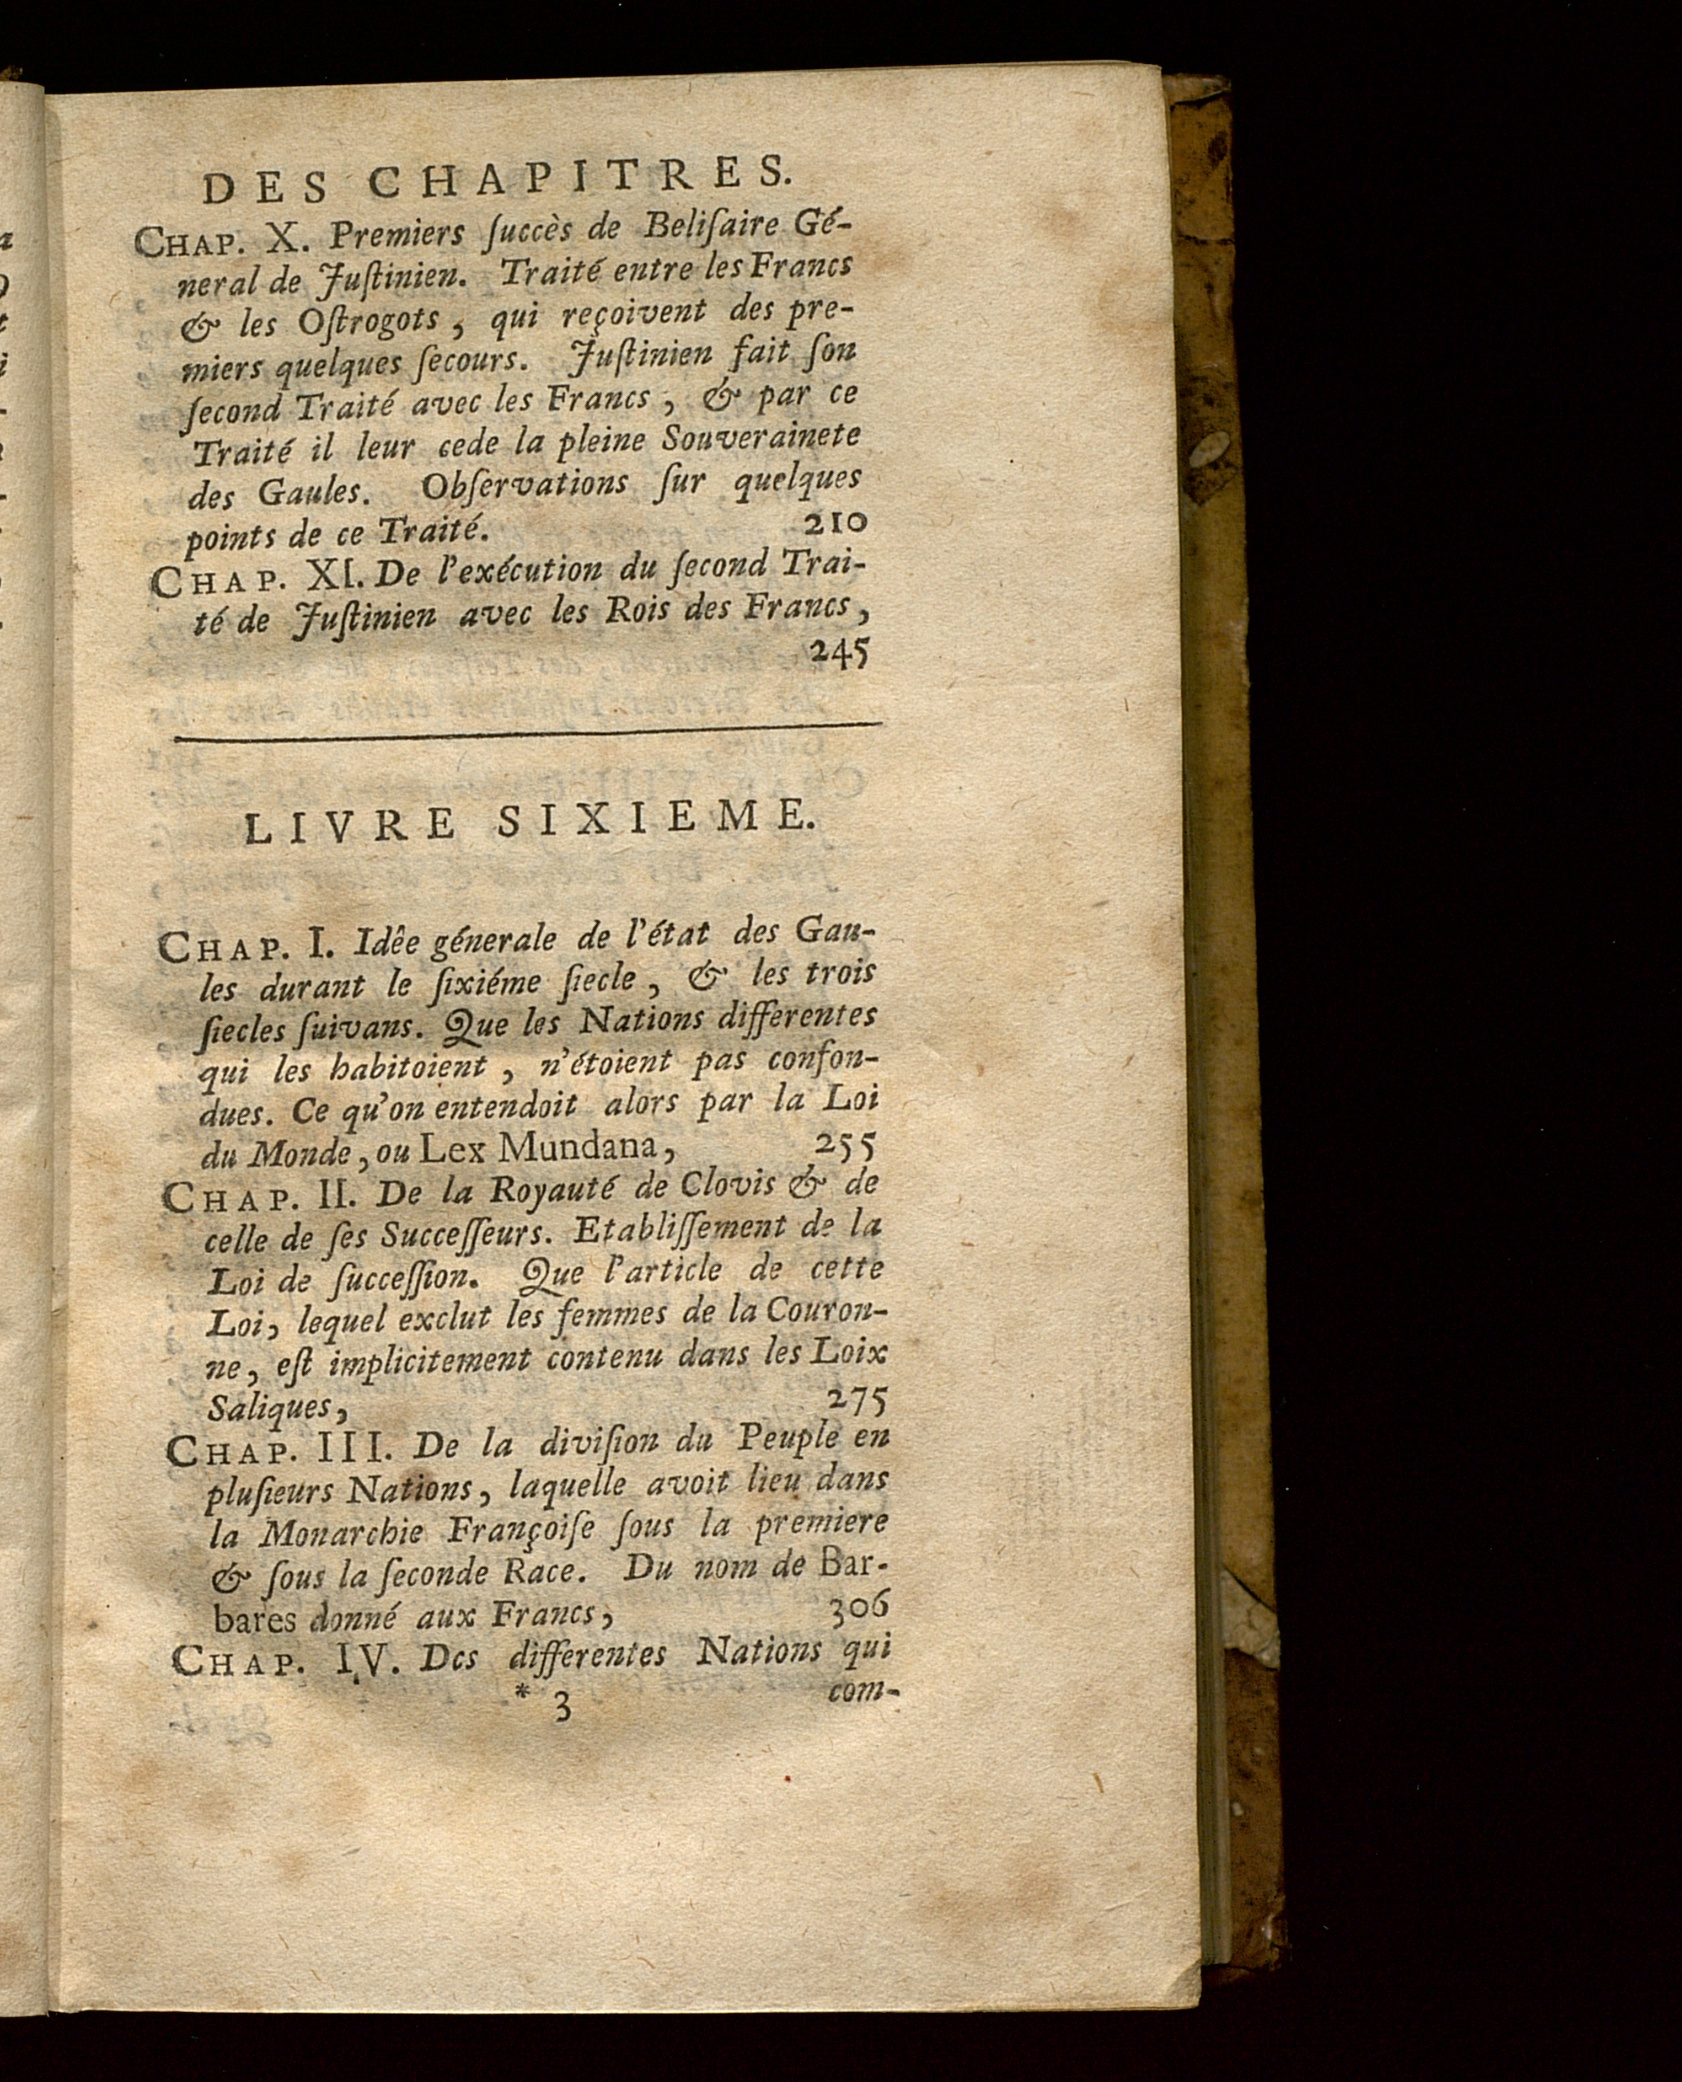 DES CHAPITRES.
CHAP. X. Premiers ſuccès de Beliſaire Gé-
neral de Juſtinien. Traité entre les Francs
& les Oſtrogots, qui reçoivent des pre-
miers quelques ſecours. Juſtinien fait ſon
ſecond Traité avec les Francs, & par ce
Traité il leur cede la pleine Souverainete
des Gaules. Obſervations ſur quelques
points de ce Traité. 210
CHAP. XI. De l'exécution du ſecond Trai-
té de Juſtinien avec les Rois des Francs,
245
LIVRE SIXIEME.
CHAP. I. Idêe génerale de l'état des Gau-
les durant le ſixiéme ſiecle, & les trois
ſiecles ſuivans. Que les Nations differentes
qui les habitoient, n'étoient pas confon-
dues. Ce qu'on entendoit alors par la Loi
du Monde, ou Lex Mundana, 255
CHAP. II. De la Royauté de Clovis & de
celle de ſes Succeſſeurs. Etabliſſement de la
Loi de ſucceſſion. Que l'article de cette
Loi, lequel exclut les femmes de la Couron-
ne, eſt implicitement contenu dans les Loix
Saliques, 275
CHAP. III. De la diviſion du Peuple en
pluſieurs Nations, laquelle avoit lieu dans
la Monarchie Françoiſe ſous la premiere
& ſous la ſeconde Race. Du nom de Bar-
bares donné aux Francs, 306
CHAP. IV. Des differentes Nations qui
* 3 com-